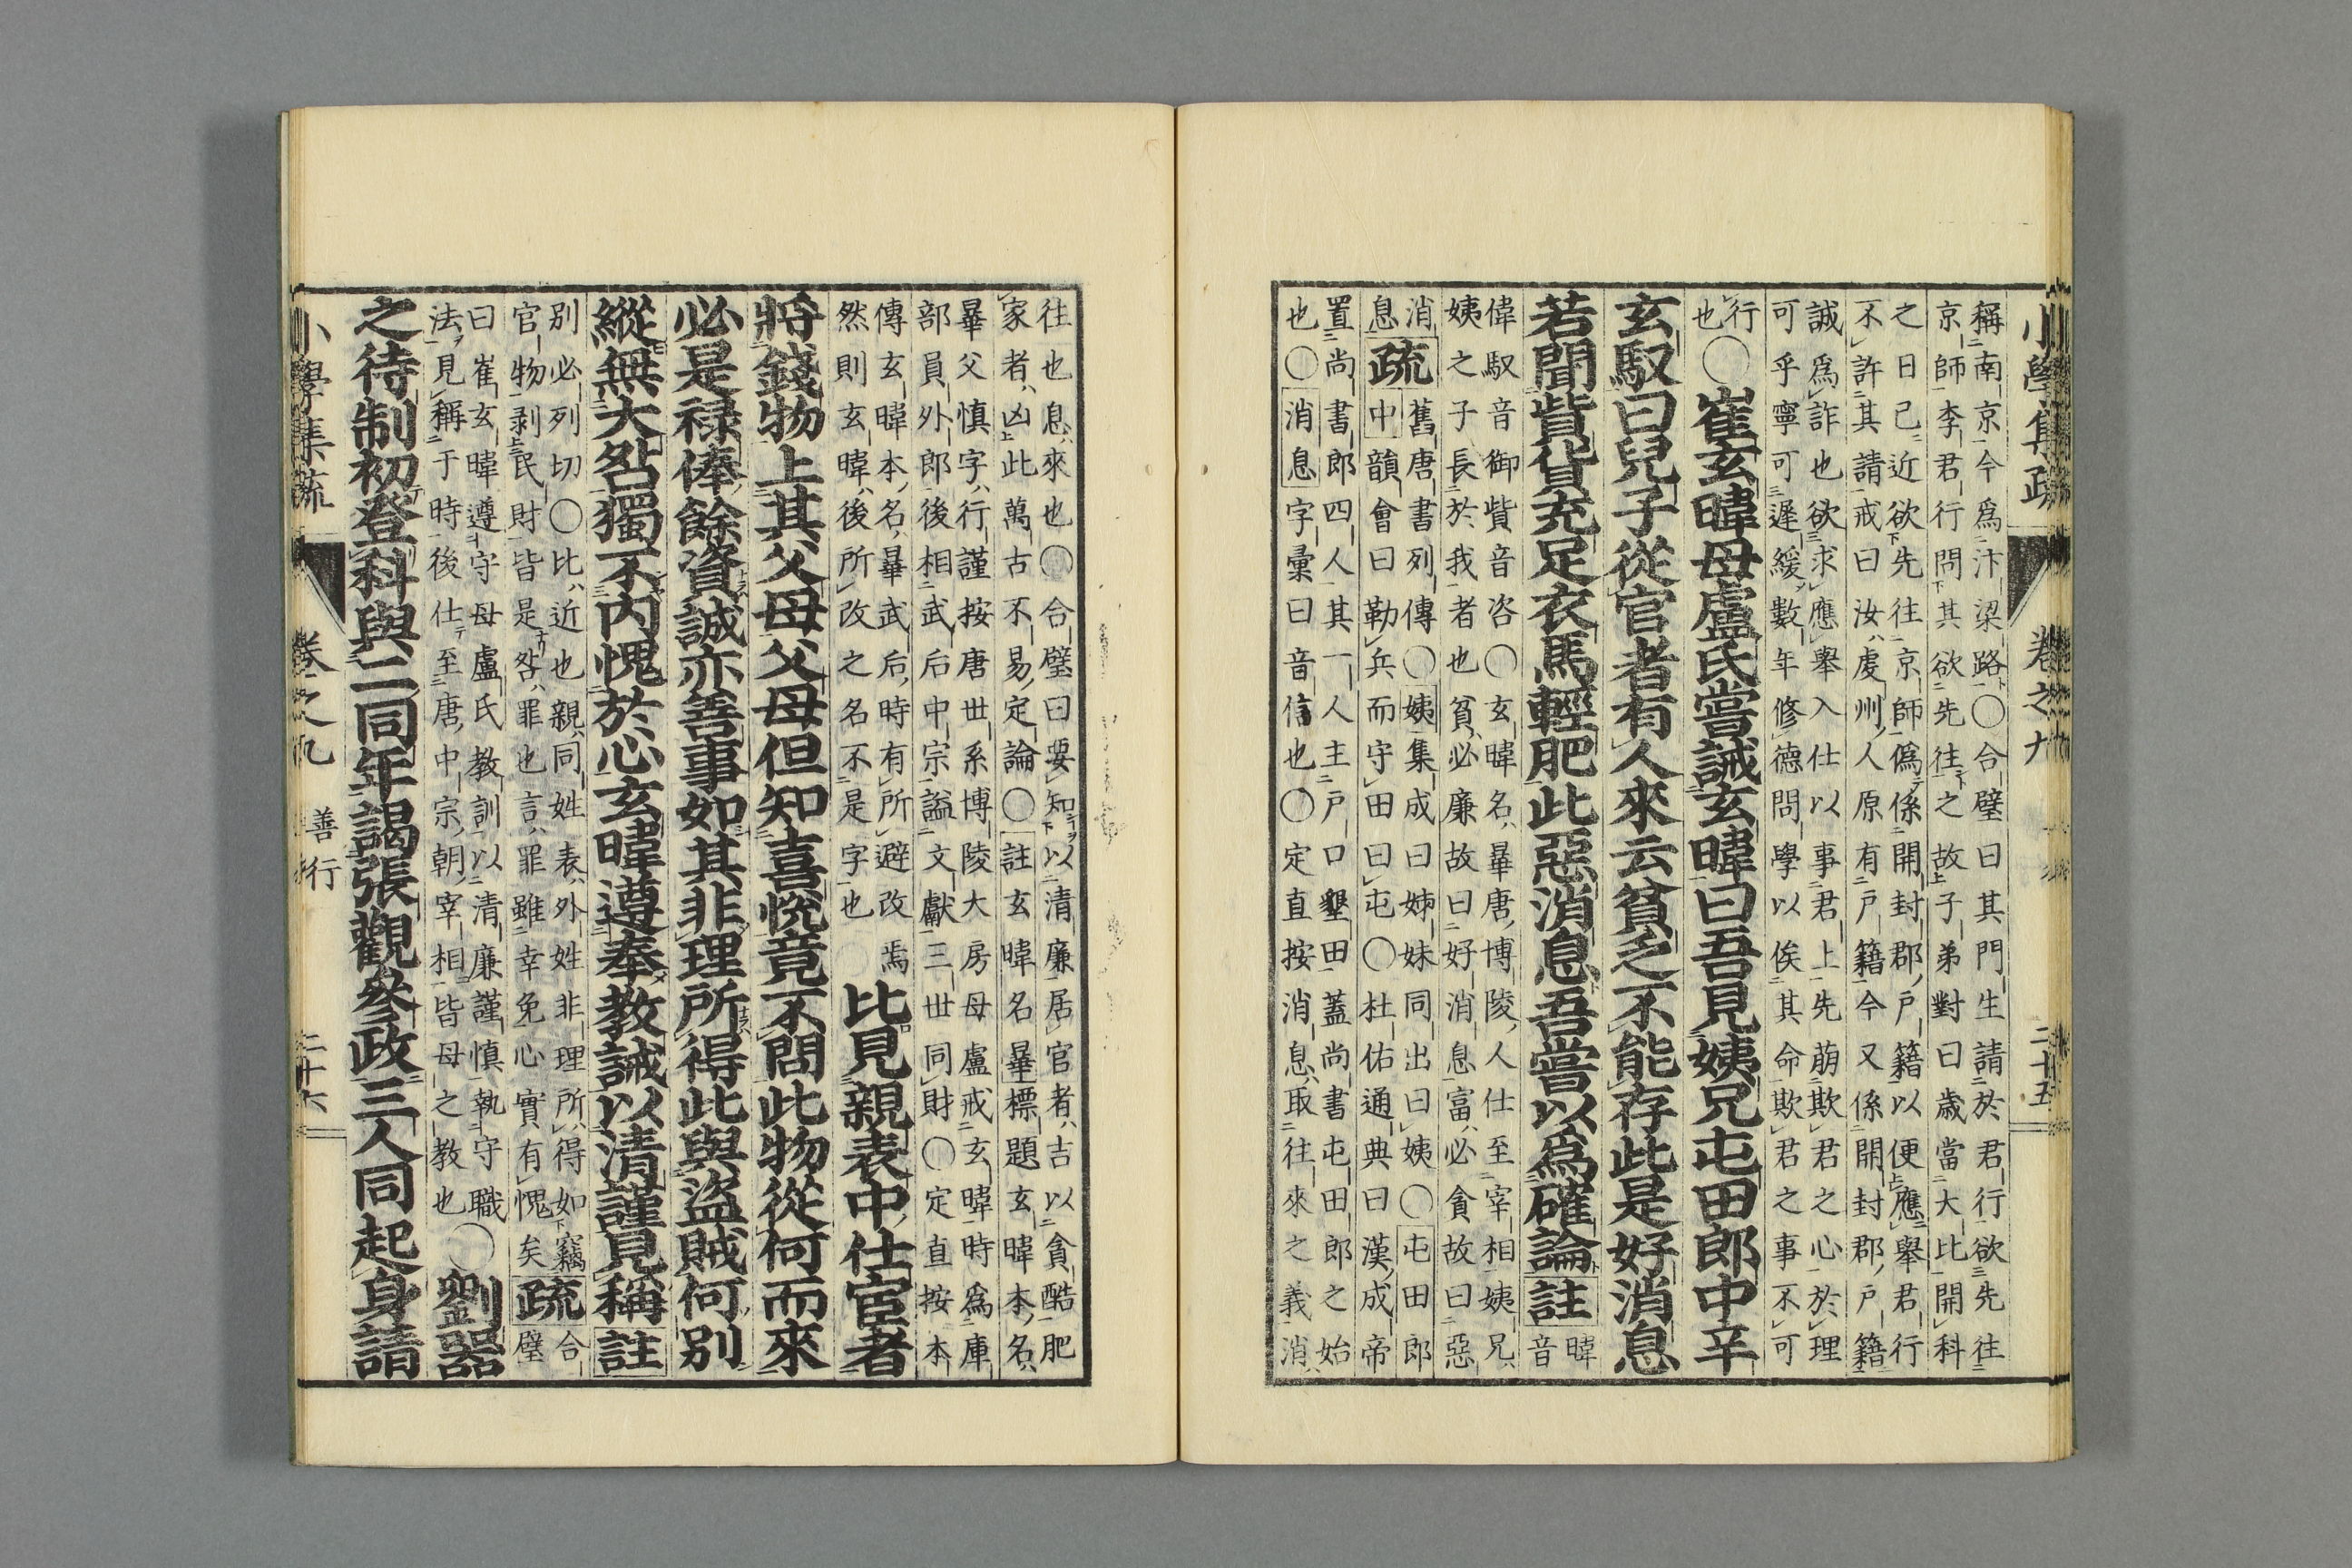 小學集疏 卷之九 二十五
稱南京今爲汴梁路○合璧曰其門生請於君行欲先往
京師李君行問其欲先往之故子弟對曰歲當大比開科
之日已近欲先往京師僞係開封郡戶籍以便應擧君行
不許其請戒曰汝虔州人原有戶籍今又係開封郡戶籍
誠爲詐也欲求應擧入仕以事君上先萠欺君之心於理
可乎寧可遲緩數年修德問學以俟其命欺君之事不可
行
也○崔玄暐母盧氏嘗誡玄暐曰吾見姨兄屯田郎中辛
玄馭曰兒子從官者有人來云貧乏不能存此是好消息
若聞貲貨充足衣馬輕肥此惡消息吾嘗以爲確論註暐
音
偉馭音御貲音咨○玄暐名曅唐博陵人仕至宰相姨兄
姨之子長於我者也貧必廉故曰好消息富必貪故曰惡
消
息疏舊唐書列傳○姨集成曰姊妹同出曰姨○屯田郎
中韻會曰勒兵而守田曰屯○杜佑通典曰漢成帝
置尚書郎四人其一人主戶口墾田蓋尚書屯田郎之始
也○消息字彙曰音信也○定直按消息取往來之義消
往也息來也○合璧曰要知以清廉居官者吉以貪酷肥
家者凶此萬古不易定論○註玄暐名曅標題玄暐本名
曅父慎字行謹按唐世系博陵大房母盧戒玄暐時爲庫
部員外郎後相武后中宗謚文獻三世同財○定直按本
傳玄暐本名曅武后時有所避改焉
然則玄暐後所改之名不是字也
比見親表中仕宦者
將錢物上其父母父母但知喜悅竟不問此物從何而來
必是祿俸餘資誠亦善事如其非理所得此與盜賊何別
縱無大咎獨不內愧於心玄暐遵奉教誡以清謹見稱註
別必列切○比近也親同姓表外姓非理所得如竊
官物剥民財皆是咎罪也言罪雖幸免心實有愧矣疏合
璧
曰崔玄暐遵守母盧氏教訓以清廉謹慎執守職
法見稱于時後仕至唐中宗朝宰相皆母之教也○劉器
之待制初登科與二同年謁張觀參政三人同起身請
小學集疏 卷之九 善行 二十六